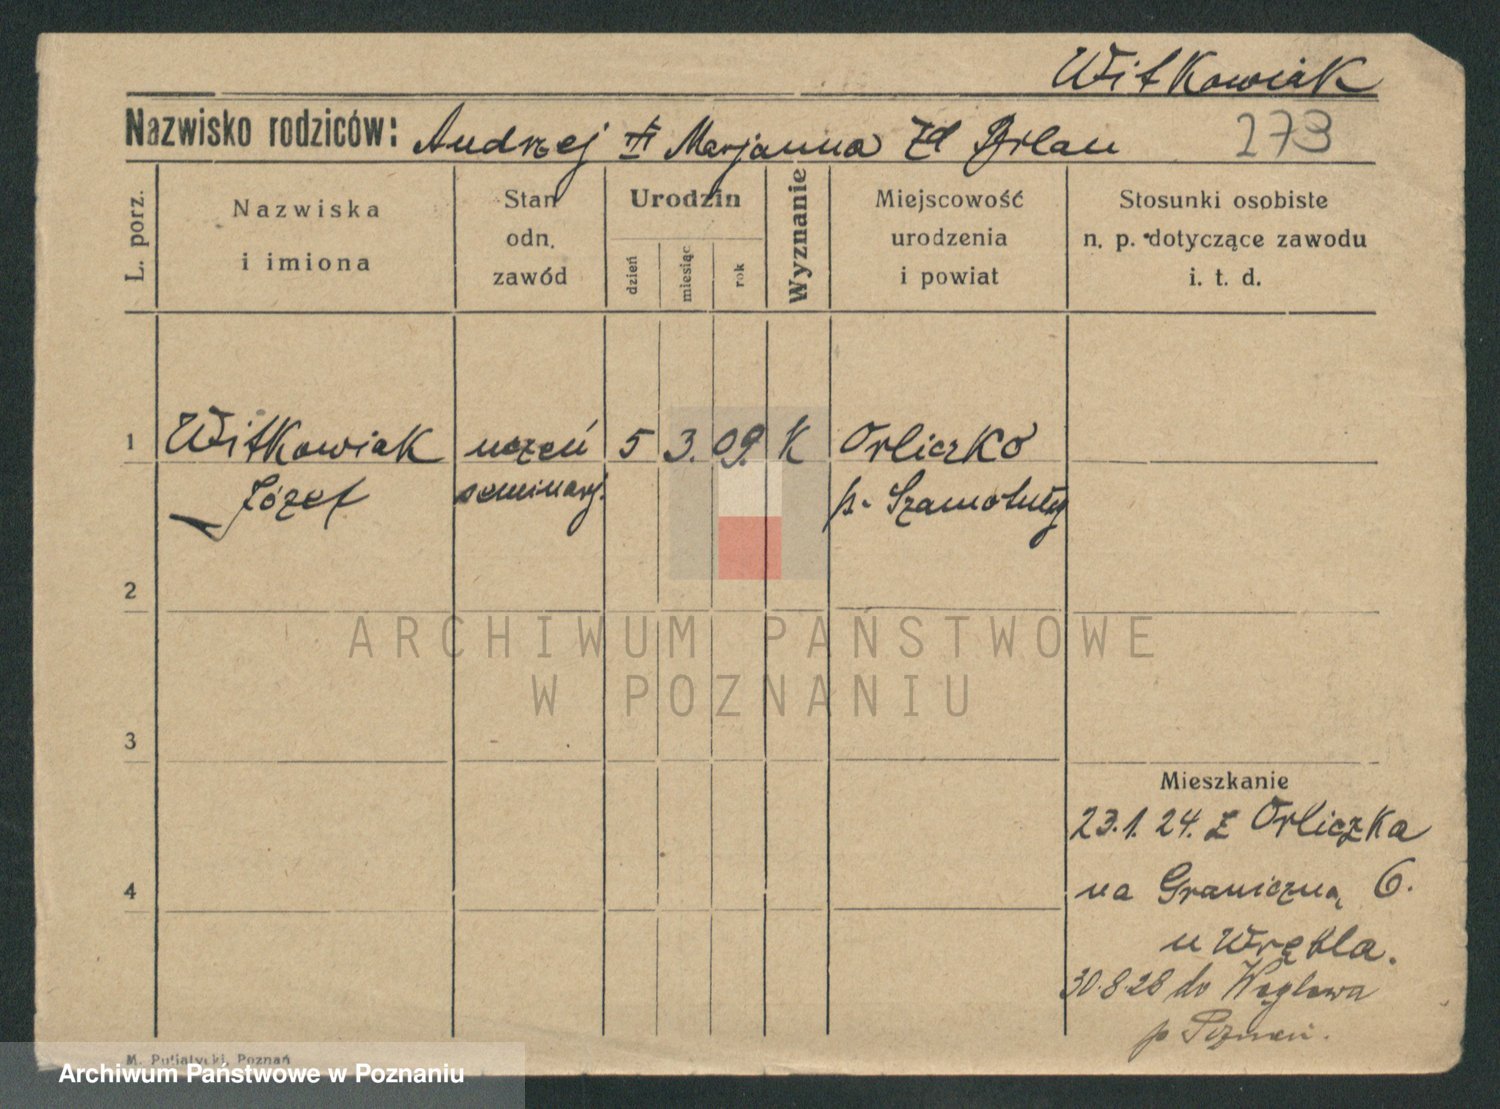 Witkowiak
Nazwisko rodziców: Andrzej Marjanna zd 273
L. porz.
Nazwiska
i imiona
Stan
odn.
zawód
Urodzin
dzień
miesiąc
rok
Wyznanie
Miejscowość
urodzenia
i powiat
Stosunki osobiste
n. p. dotyczące zawodu
i. t. d.
1 Witkowiak uczeń 5 3. 09. K Orliczko
Józef seminarj. p. Szamotuły
2
ARCHIWUM PAŃSTWOWE
W POZNANIU
3
Mieszkanie
23.1.24. z Orliczka
4
na Graniczną 6.
u Wrębla.
30.8.28 do
p Poznań.
M. Putiatycki, Poznań
Archiwum Państwowe w Poznaniu